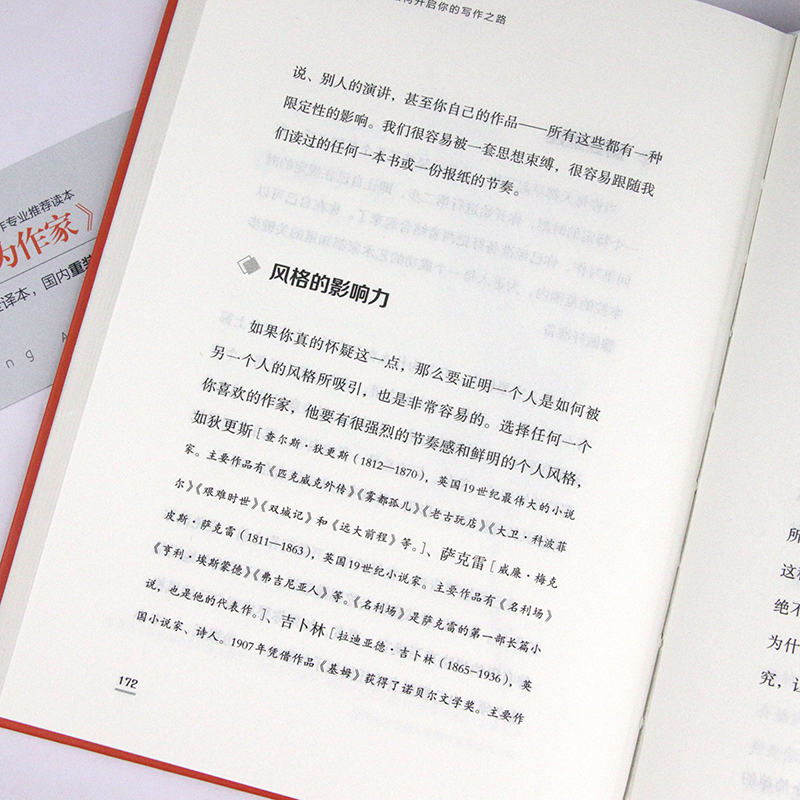 开启你的写作之路
说、别人的演讲，甚至你自己的作品——所有这些都有一种
限定性的影响。我们很容易被一套思想束缚，很容易跟随我
们读过的任何一本书或一份报纸的节奏。
风格的影响力
如果你真的怀疑这一点，那么要证明一个人是如何被
另一个人的风格所吸引，也是非常容易的。选择任何一个
你喜欢的作家，他要有很强烈的节奏感和鲜明的个人风格，
如狄更斯［查尔斯·狄更斯（1812—1870），英国19世纪最伟大的小说
家。主要作品有《匹克威克外传》《雾都孤儿》《老古玩店》《大卫·科波菲
尔》《艰难时世》《双城记》和《远大前程》等。］、萨克雷［威廉·梅克
皮斯·萨克雷（1811—1863），英国19世纪小说家。主要作品有《名利场》
《亨利·埃斯蒙德》《弗吉尼亚人》等。《名利场》是萨克雷的第一部长篇小
说，也是他的代表作。］、吉卜林［拉迪亚德·吉卜林（1865-1936），英
国小说家、诗人。1907年凭借作品《基姆》获得了诺贝尔文学奖。主要作
172
作专业推荐读本
为作家》
译本，国内重
ng A
所
这
绝不
为什
究，让